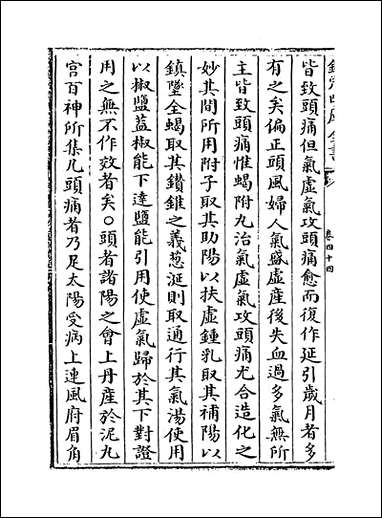 欽定四庫全書
卷四十四
皆致頭痛但氣虛氣攻頭痛愈而復作延引歲月者多
有之矣偏正頭風婦人氣盛虛産後失血過多氣無所
主皆致頭痛惟蝎附丸治氣虛氣攻頭痛尤合造化之
妙其間所用附子取其助陽以扶虛鍾乳取其補陽以
鎮墜全蝎取其鑽錐之義葱涎則取通行其氣湯使用
以椒鹽蓋椒能下達鹽能引用使虛氣歸於其下對證
用之無不作效者矣○頭者諸陽之會上丹産於泥丸
宫百神所集凡頭痛者乃足太陽受病上連風府眉角